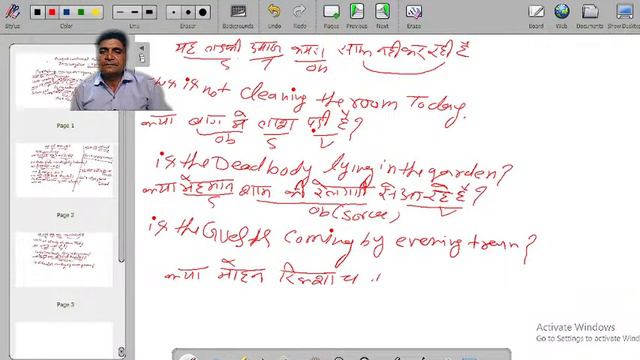 Stylus
Colors
Line Size
Line Style
Backgrounds
Undo
Redo
Eraser
Board
Web
Documents
Show Desktop
यह लडकी इमाज कमरा साफ नही कर रही है
S T ob
is not cleaning the room Today.
क्या बाग मे लाश पडी है?
ob S V
is the Dead body lying in the garden?
क्या मेहमान शाम की रेलगाडी से आ रहे है?
S ob(Sorce) V
is the Guests coming by evening train?
क्या मोहन रिक्शा च
Page 1
Page 2
Page 3
Activate Windows
Go to Settings to activate Wind